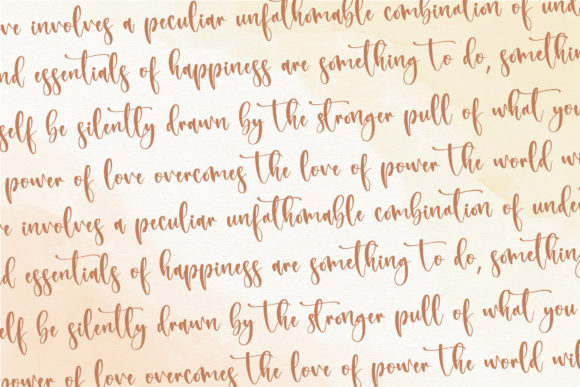 ve involves a peculiar unfathomable combination of und
nd essentials of happiness are something to do, somethin
self be silently drawn by the stronger pull of what you
power of love overcomes the love of power the world wi
ve involves a peculiar unfathomable combination of unde
d essentials of happiness are something to do, something
elf be silently drawn by the stronger pull of what you
power of love overcomes the love of power the world wil